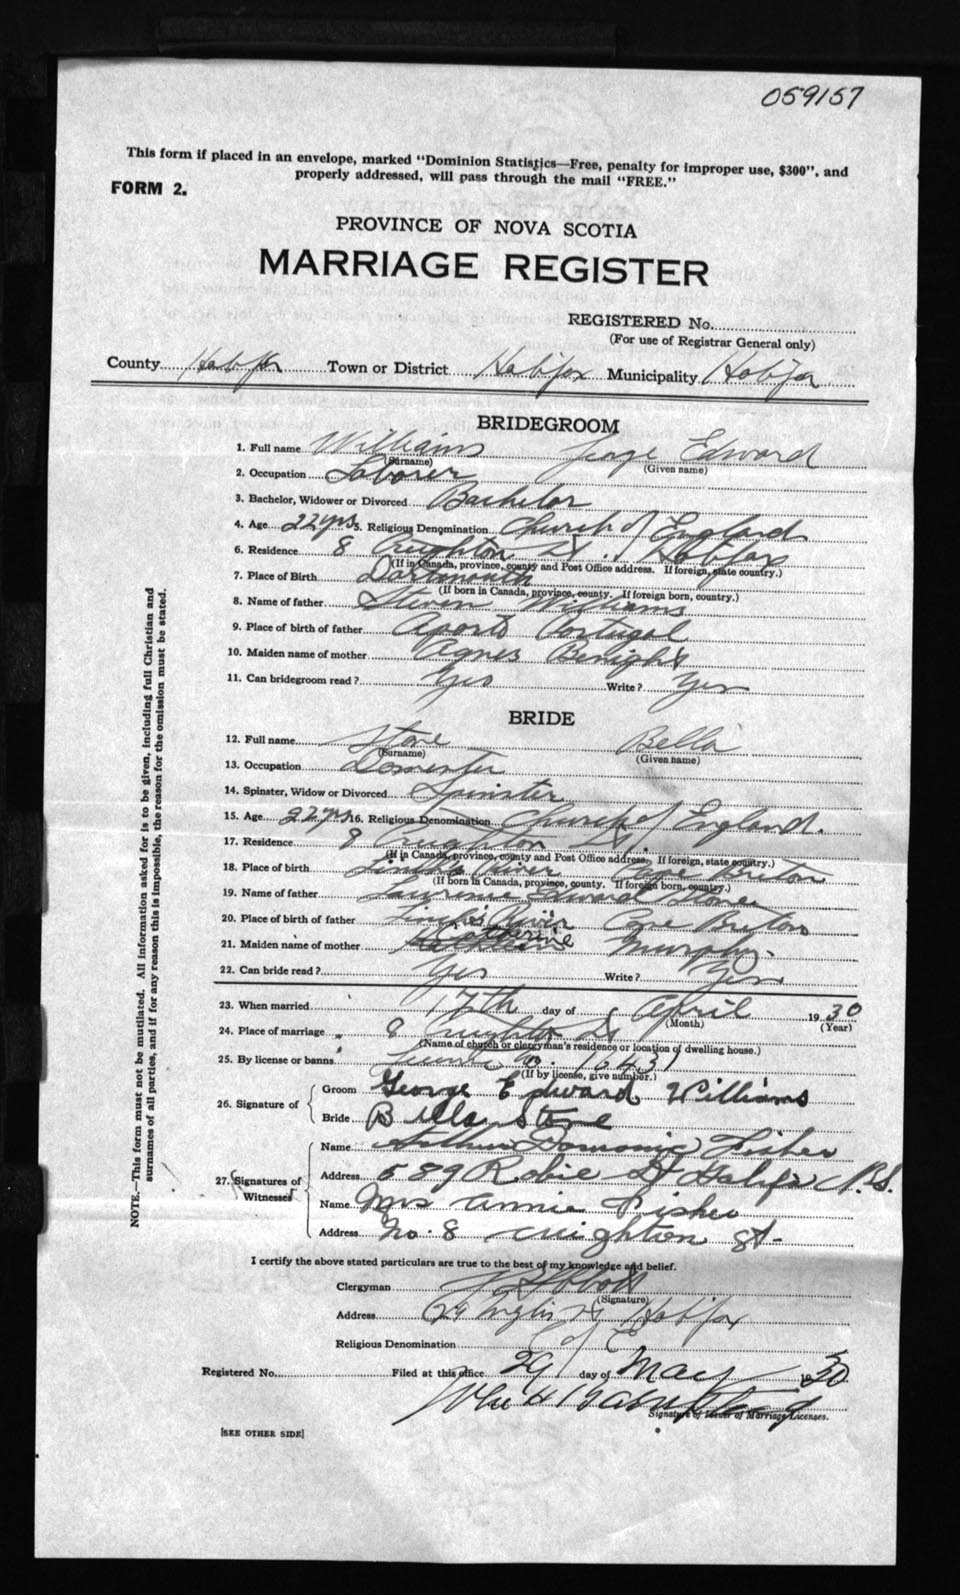 059157
This form if placed in an envelope, marked "Dominion Statistics—Free, penalty for improper use, $300", and
properly addressed, will pass through the mail "FREE."
FORM 2.
PROVINCE OF NOVA SCOTIA
MARRIAGE REGISTER
REGISTERED No.
(For use of Registrar General only)
County Halifax Town or District Halifax Municipality Halifax
BRIDEGROOM
1. Full name Williams George Edward
(Surname) (Given name)
2. Occupation Laborer
3. Bachelor, Widower or Divorced Bachelor
4. Age 22 yrs 5. Religious Denomination Church of England
6. Residence 8 Creighton St. Halifax
(If in Canada, province, county and Post Office address. If foreign, state country.)
7. Place of Birth Dartmouth
(If born in Canada, province, county. If foreign born, country.)
8. Name of father Steven Williams
9. Place of birth of father Aporto Portugal
10. Maiden name of mother Agnes
11. Can bridegroom read? Yes Write? Yes
BRIDE
12. Full name Stone Bella
(Surname) (Given name)
13. Occupation Domestic
14. Spinster, Widow or Divorced Spinster
15. Age 22 yrs 16. Religious Denomination Church of England.
17. Residence 8 Creighton St.
(If in Canada, province, county and Post Office address. If foreign, state country.)
18. Place of birth River Cape Breton
(If born in Canada, province, county. If foreign born, country.)
19. Name of father Lawrence Edward Stone
20. Place of birth of father River Cape Breton
21. Maiden name of mother Catherine Murphy
22. Can bride read? Yes Write? Yes
23. When married 17th day of April 1930
(Month) (Year)
24. Place of marriage 8 Creighton St
(Name of church or clergyman's residence or location of dwelling house.)
25. By license or banns License No. 16431
(If by license, give number.)
26. Signature of
Groom George Edward Williams
Bride Bella Stone
27. Signatures of Witnesses
Name Arthur Dominic Fisher
Address 589 Robie St Halifax N.S.
Name Mrs Annie Fisher
Address No. 8 Creighton St-
I certify the above stated particulars are true to the best of my knowledge and belief.
Clergyman
(Signature)
Address Inglis St Halifax
Religious Denomination C of E
Registered No. Filed at this office 29 day of May 1930
Signature of Issuer of Marriage Licenses.
[SEE OTHER SIDE]
NOTE.—This form must not be mutilated. All information asked for is to be given, including full Christian and
surnames of all parties, and if for any reason this is impossible, the reason for the omission must be stated.